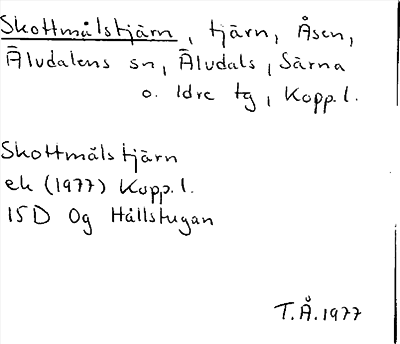 Skottmålstjärn, tjärn, Åsen,
Älvdalens sn, Älvdals, Särna
o. Idre tg, Kopp.l.
Skottmåls tjärn
ek (1977) Kopp.l.
15D 0g Hållstugan
T.Å.1977